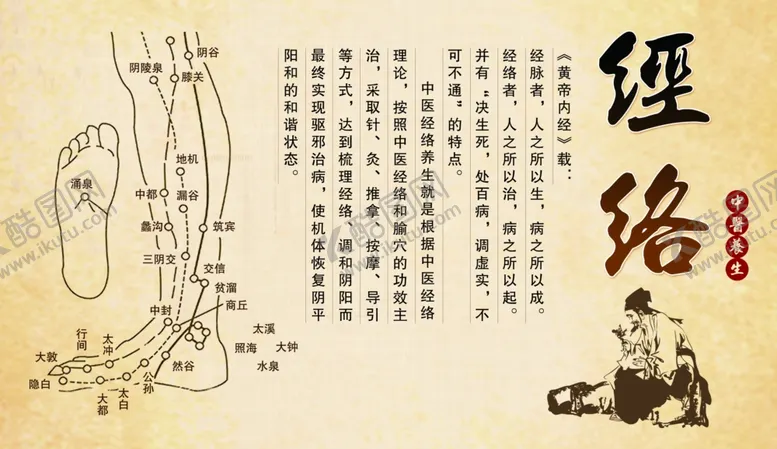 經絡
中醫養生
《黄帝内经》载：
经脉者，人之所以生，病之所以成。
经络者，人之所以治，病之所以起。
并有“决生死，处百病，调虚实，不
可不通”的特点。
中医经络养生就是根据中医经络
理论，按照中医经络和腧穴的功效主
治，采取针、灸、推拿、按摩、导引
等方式，达到梳理经络、调和阴阳而
最终实现驱邪治病，使机体恢复阴平
阳和的和谐状态。
阴谷
阴陵泉
膝关
地机
涌泉
中都
漏谷
蠡沟
筑宾
三阴交
交信
贫溜
商丘
中封
太溪
行间
太冲
照海
大钟
大敦
水泉
然谷
隐白
公孙
大都
太白
酷图网
www.ikutu.com
酷图网
www.ikutu.com
酷图网
www.ikutu.com